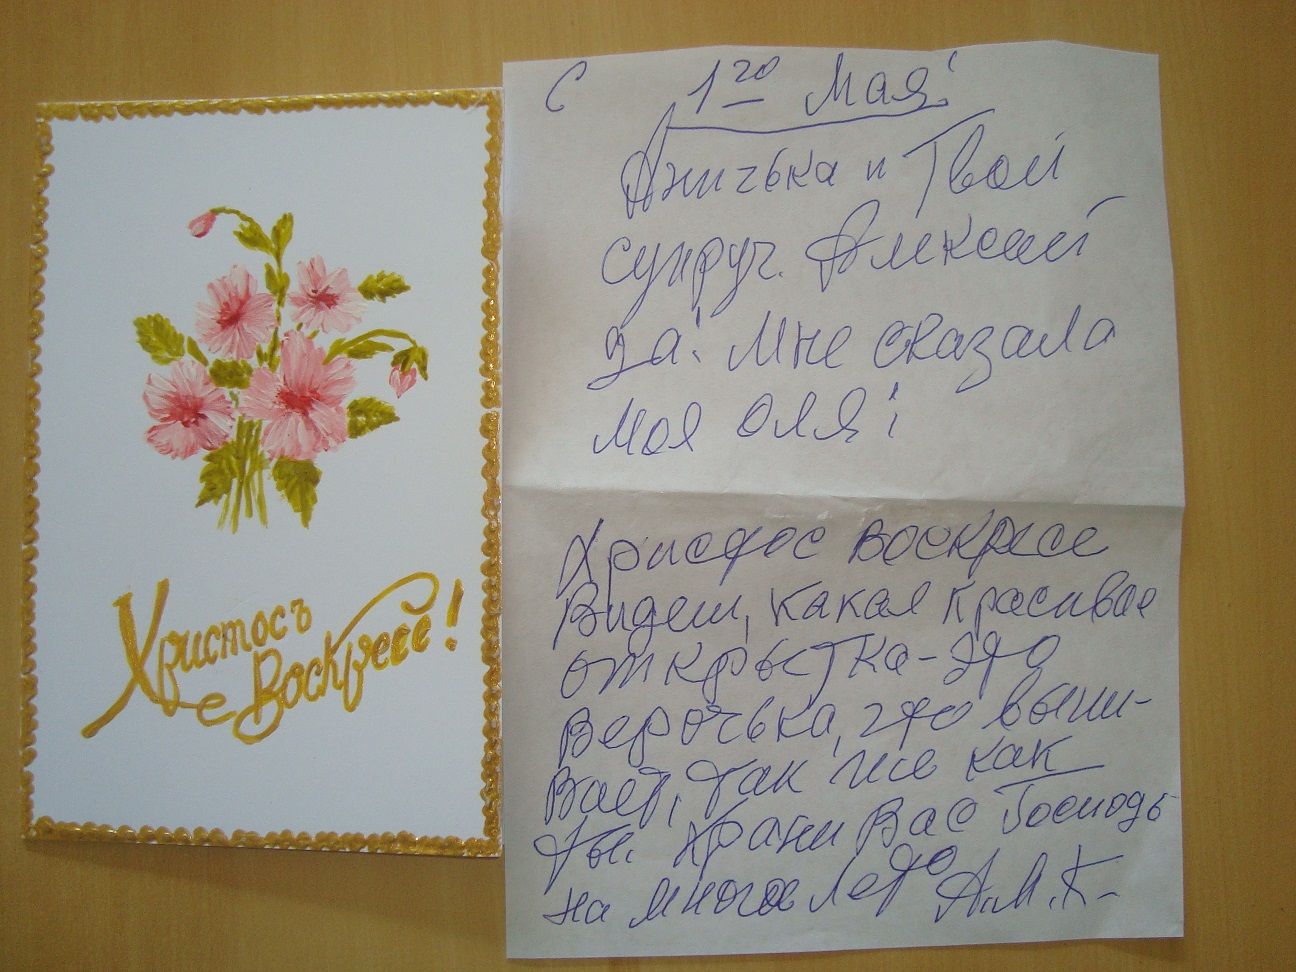 Христосъ
Воскресе!
С 1го Мая!
Аничька и Твой
супруг. Алексей
да! Мне сказала
моя Оля!
Христос Воскресе
Видеш, какая красивае
открыстка - это
Верочька, что выши-
вает, так же как
ты. Храни Вас Господь
на многое лето А.М.К.